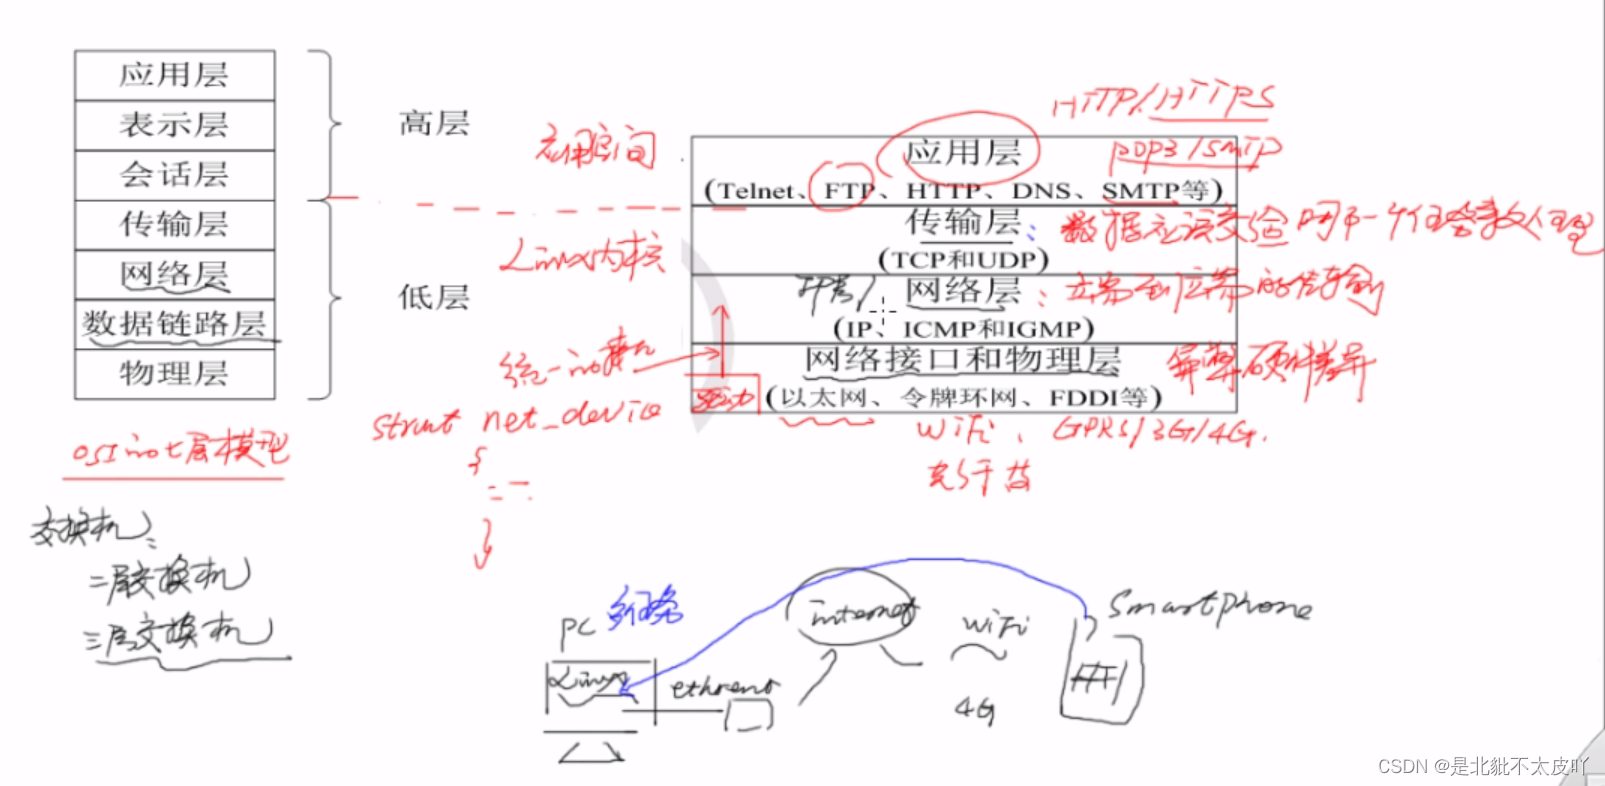 应用层
表示层
会话层
传输层
网络层
数据链路层
物理层
高层
低层
OSI的七层模型
交换机:
二层交换机
三层交换机
应用空间
Linux内核
统一的接口
struct net_device
{
}
HTTP/HTTPS
POP3/SMTP
应用层
(Telnet、FTP、HTTP、DNS、SMTP等)
传输层:
(TCP和UDP)
网络层:
(IP、ICMP和IGMP)
网络接口和物理层
屏蔽硬件差异
驱动
(以太网、令牌环网、FDDI等)
WiFi、GPRS/3G/4G.
PC
多任务
Linux
internet
WiFi
4G
Smartphone
CSDN @是北豼不太皮吖